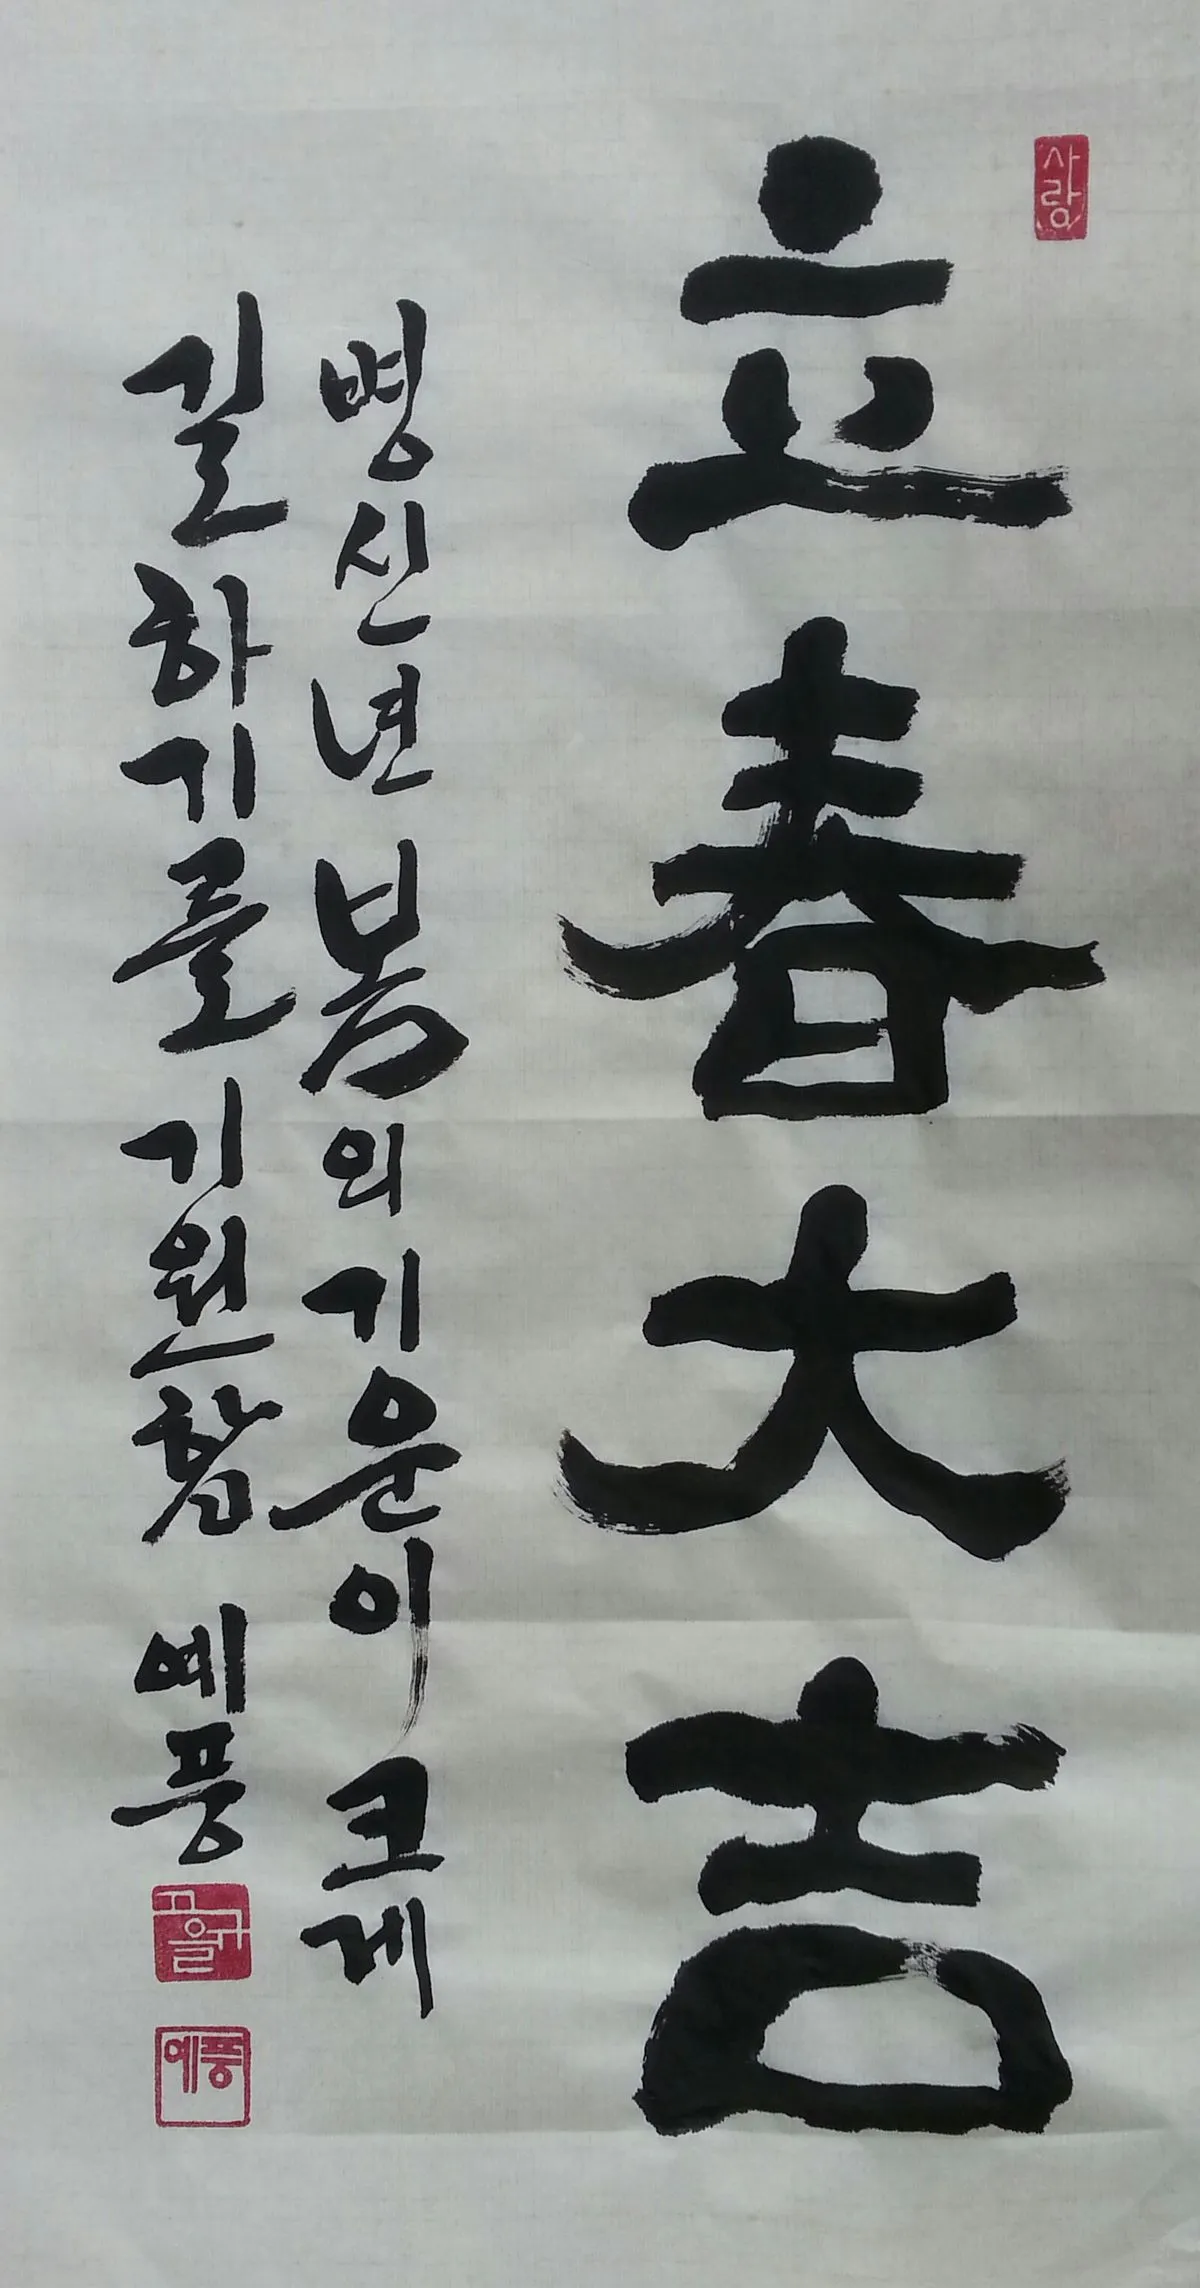 사랑
立春大吉
병신년 봄의 기운이 크게
길하기를 기원함 예풍
예풍